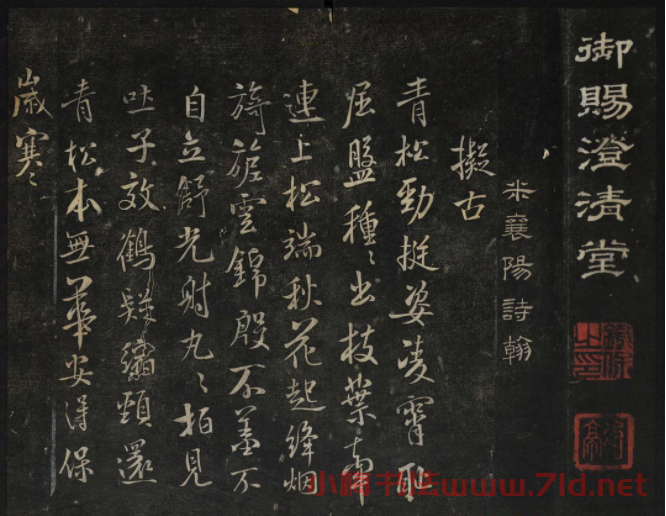 御賜澄清堂
米襄陽詩翰
擬古
青松勁挺姿凌霄恥
屈盤種〻出枝葉牽
連上松端秋花起絳烟
旖旎雲錦殷不羞不
自立舒光射丸〻柏見
吐子效鶴疑縮頸還
青松本無華安得保
歲寒
小楷书法www.7ld.net